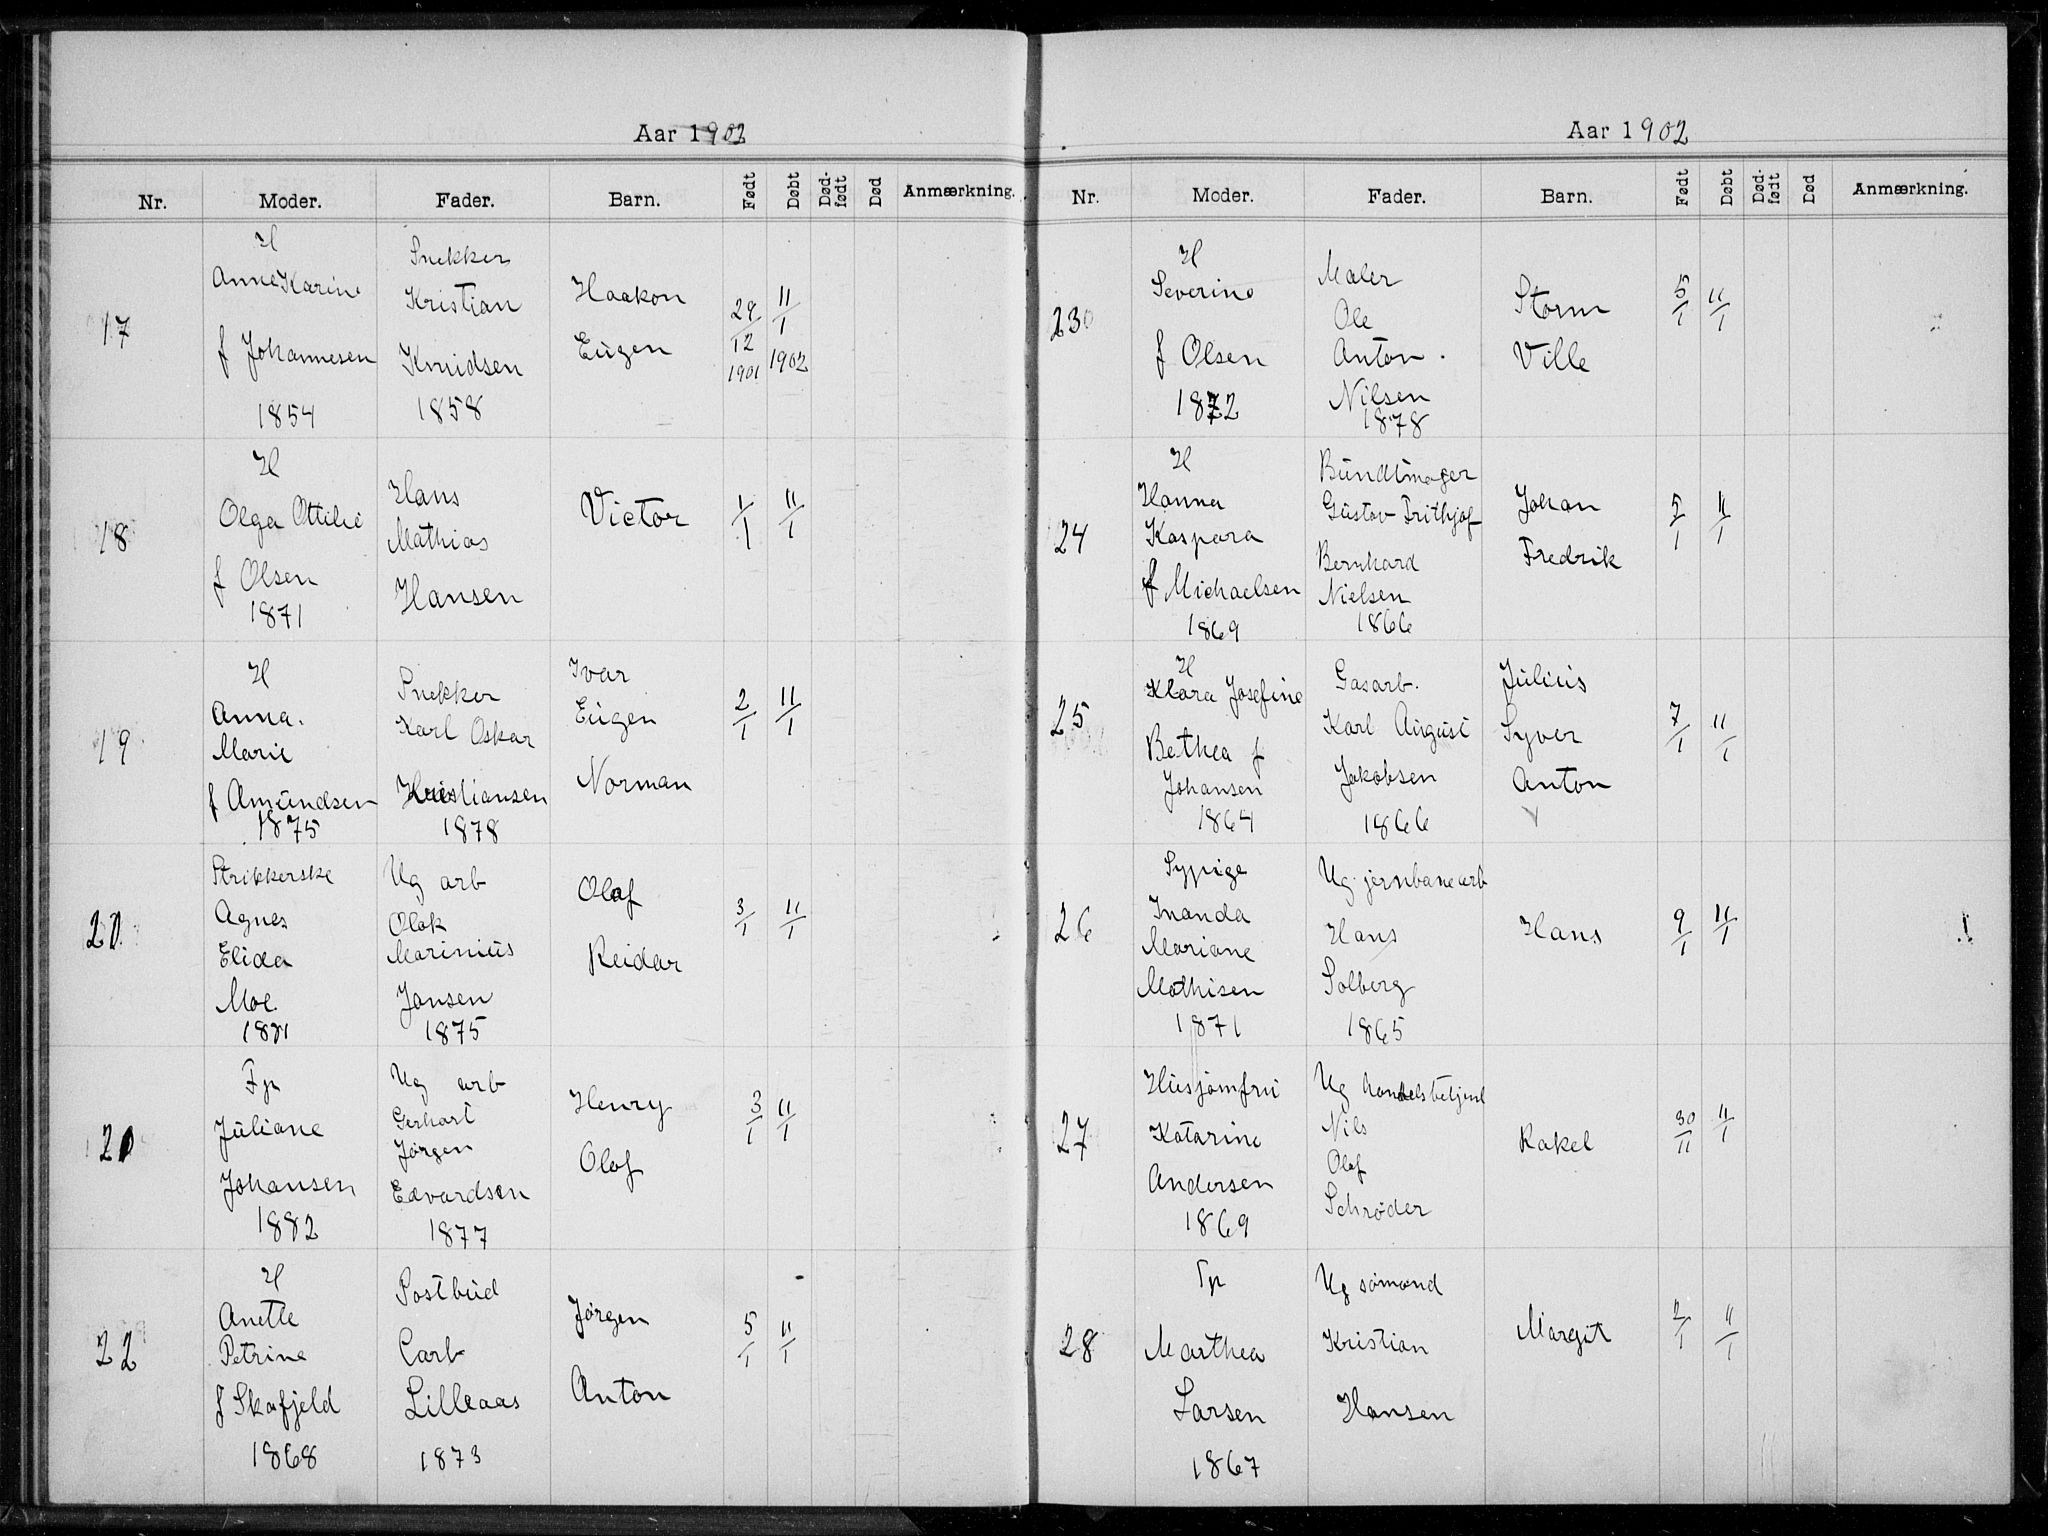 Aar 1902
Nr. Moder. Fader. Barn. Født Døbt Død-født Død Anmærkning.
17
H
Anne Karine
f Johannesen
1854
Snekker
Kristian
Knudsen
1858
Haakon
Eugen
29/12 1901
11/1 1902
18
H
Olga Ottilie
f Olsen
1871
Hans
Mathias
Hansen
Victor
1/1
11/1
19
H
Anna
Marie
f Amundsen
1875
Snekker
Karl Oskar
Kristiansen
1878
Ivar
Eugen
Norman
2/1
11/1
Strikkerske
Agnes
Elida
Moe.
Ug arb
Olak
Marinius
Jansen
1875
Olaf
Reidar
3/1
11/1
Fp
Juliane
Johansen
1882
Ug arb
Gerhart
Jørgen
Edvardsen
1877
Henry
Olaf
3/1
11/1
22
H
Anette
Petrine
f Skafjeld
1868
Postbud
Carb
Lilleaas
1873
Jørgen
Anton
5/1
11/1
Aar 1902
Nr. Moder. Fader. Barn. Født Døbt Død-født Død Anmærkning.
23
H
Severine
f Olsen
1872
Maler
Ole
Anton
Nilsen
1878
Storm
Ville
5/1
11/1
24
H
Hanna
Kaspara
f Michaelsen
1869
Bundtmager
Gustav Frithjof
Bernhard
Nielsen
1866
Johan
Fredrik
5/1
11/1
25
H
Klara Josefine
Bethea f
Johansen
1864
Gasarb.
Karl August
Jakobsen
1866
Julius
Syver
Anton
7/1
11/1
26
Sypige
Inanda
Mariane
Mathisen
1871
Ug. jernbanearb
Hans
Solberg
1865
Hans
9/1
11/1
27
Husjomfru
Katarine
Andersen
1869
Ug handelsbetjent
Nils
Olaf
Schrøder
Rakel
30/11
11/1
28
Tp
Marthea
Larsen
1867
Ug sømand
Kristian
Hansen
Margit
2/1
11/1